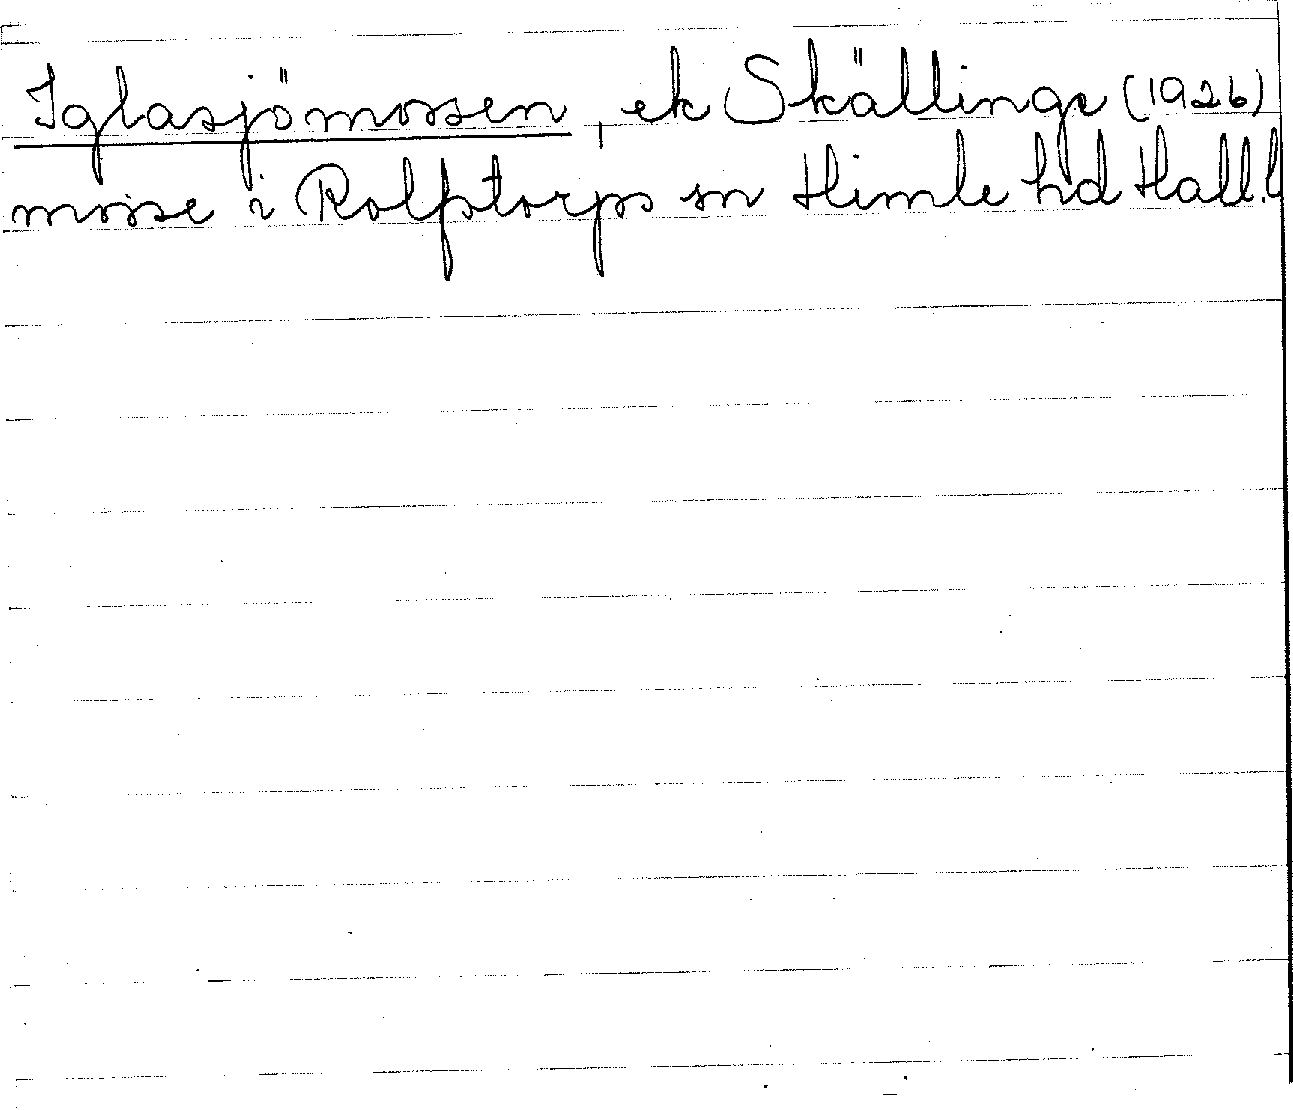 Iglasjömossen, ek Skällinge (1926)
mosse i Rolfstorps sn Himle hd Hall.l